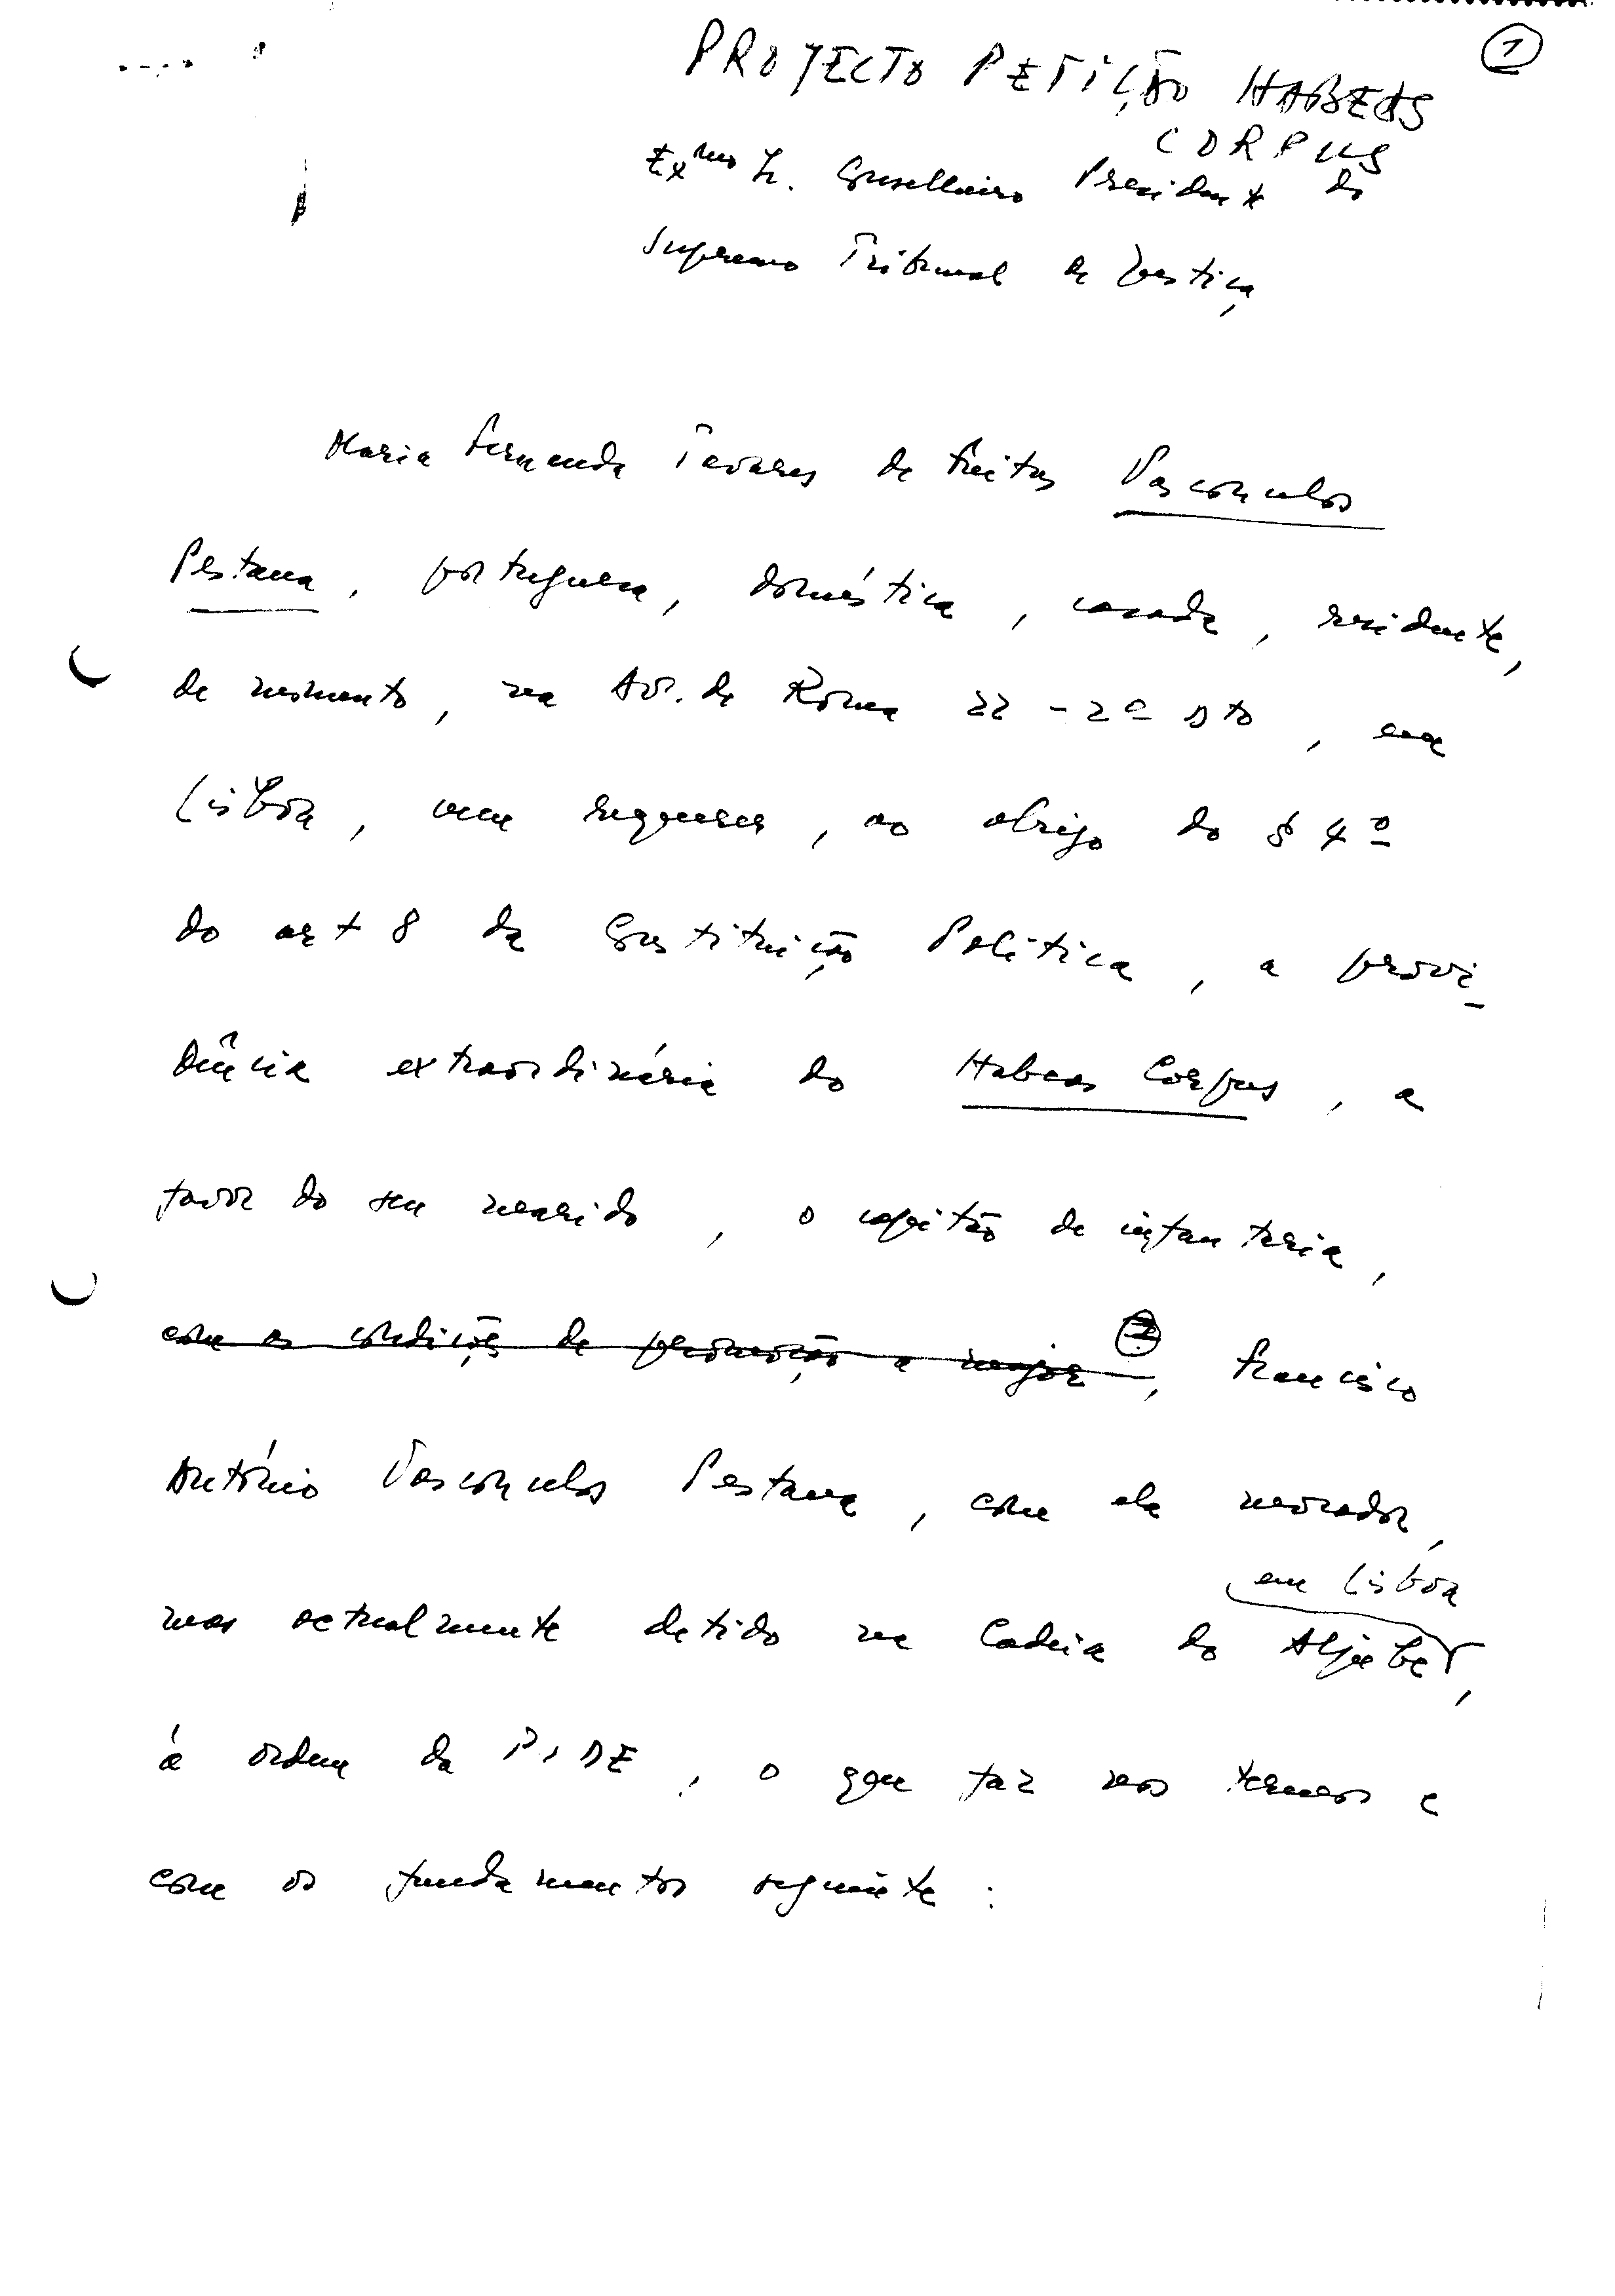 1
PROJECTO PETIÇÃO HABEAS
CORPUS
Exmo Sr. Conselheiro Presidente do
Supremo Tribunal de Justiça
Maria Fernanda Tavares de Freitas Vasconcelos
Pestana, portuguesa, doméstica, casada, residente,
de momento, na Av. de Roma 22 - 2º Dto, em
Lisboa, vem requerer, ao abrigo do § 4º
do art 8 da Constituição Política, a provi-
dência extraordinária do Habeas Corpus, a
favor do seu marido, o capitão de infantaria,
com as condições de promoção a major, Francisco
António Vasconcelos Pestana, com ela morador,
em Lisboa
mas actualmente detido na Cadeia do Aljube,
à ordem da PIDE, o que faz nos termos e
com os fundamentos seguinte: